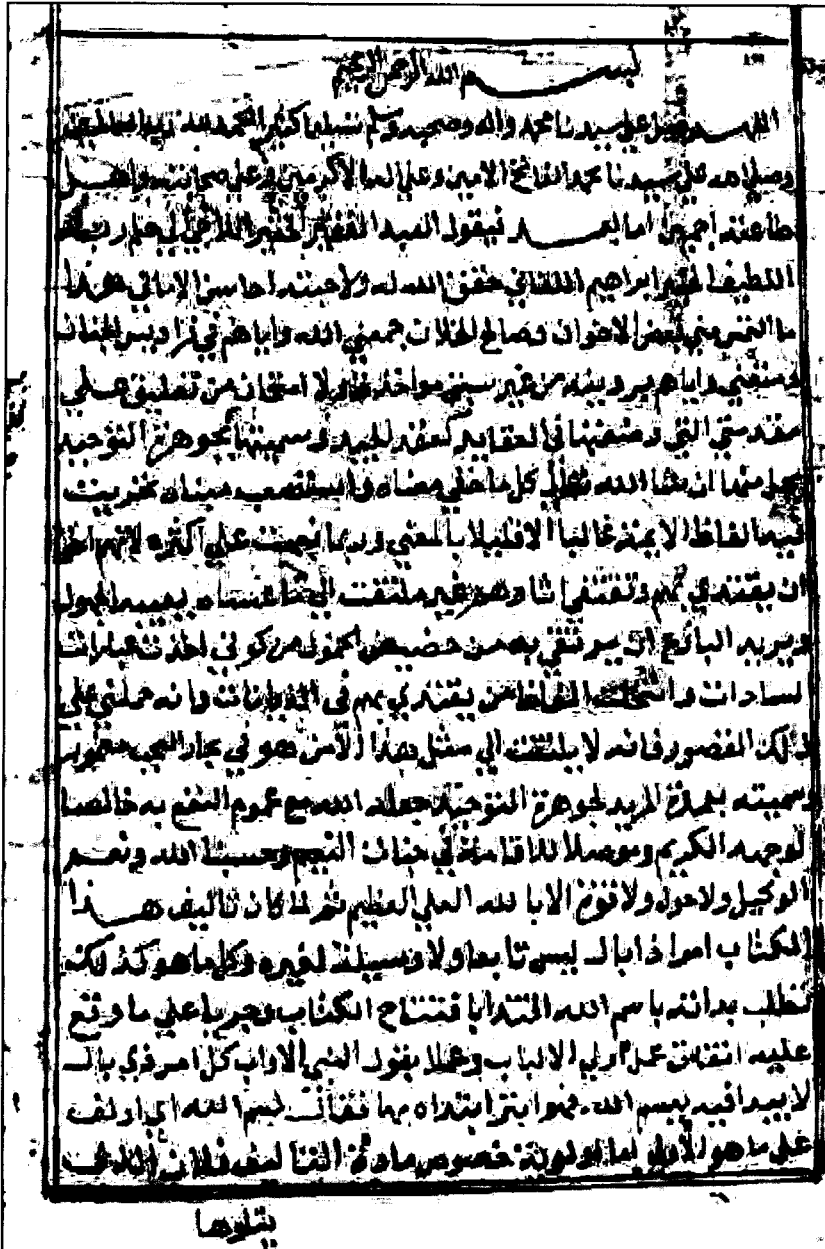 بسم الله الرحمن الرحيم
اللهم صل على سيدنا محمد واله وصحبه وسلم تسليما كثيرا الحمد لله رب العالمين
وصلى الله على سيدنا محمد الفاتح الامين وعلى اله الاكرمين وعلى صحابته واهل
طاعته اجمعين اما بعد فيقول العبد الفقير الحقير
اللطيف الخبير ابراهيم اللقاني حقق الله له ولاحبته احاسن الاماني هذا
ما التمس مني بعض الاخوان وصالح الخلان جمعني الله واياهم في فراديس الجنان
ومتعني واياهم برويته من غير سبق مواخذة ولا امتحان من تعليق على
مقدمتي التي وضعتها في العقايد كعقد الجيد وسميتها بجوهرة التوحيد
يحل منها ان شا الله تعالى كل ما خفي معناه واستصعب مبناه تحريت
فيه الفاظ الايمة غالبا الا قليلا بالمعنى وربما نبهت على اكثره لانهم احق
ان يقتدي بهم وتقتفى اثارهم غير ملتفت الى ما عساه يعيبه الجهول
ويريد البايع ان يرتقي به من حضيض الخمول من كوني اخذت عبارات
السادات وانتحلت الفاظ من يقتدي بهم في الديانات وانه حملني على
ذلك القصور فانه لا يلتفت الى مثل هذا الا من هو في بحار العجب مغمور
وسميته بعمدة المريد لجوهرة التوحيد جعله الله مع عموم النفع به خالصا
لوجهه الكريم وموصلا للاقامة في جنات النعيم وحسبنا الله ونعم
الوكيل ولا حول ولا قوة الا بالله العلي العظيم ثم لما كان تاليف هذا
الكتاب امرا ذا بال ليس تابعا ولا وسيلة لغيره وكل ما هو كذلك
تطلب بداته باسم الله اقتدا بافتتاح الكتاب وجريا على ما وقع
عليه اتفاق عمل اولي الالباب وعملا بقول النبي الاواب كل امر ذي بال
لا يبدا فيه ببسم الله فهو ابتر ابتداه بها فقال بسم الله اي اولف
على ما هو الاولى لما لاولوية خصوص مادة التاليف فلان الذي
يتلوها